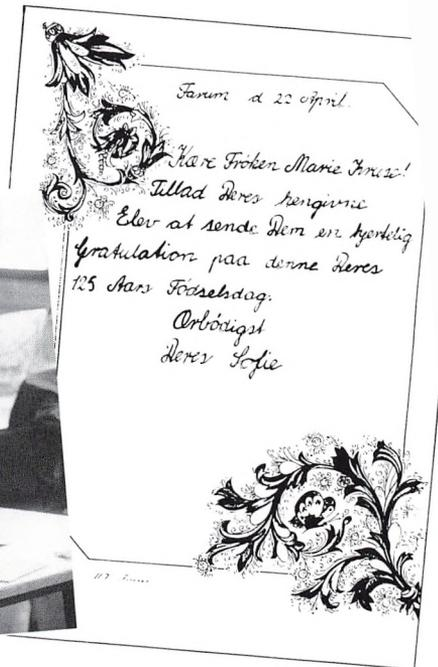 Farum d 22 April.
Kære Fröken Marie Kruse!
Tillad Deres hengivne
Elev at sende Dem en hjertelig
Gratulation paa denne Deres
125 Aars Födselsdag.
Ærbödigst
Deres Sofie